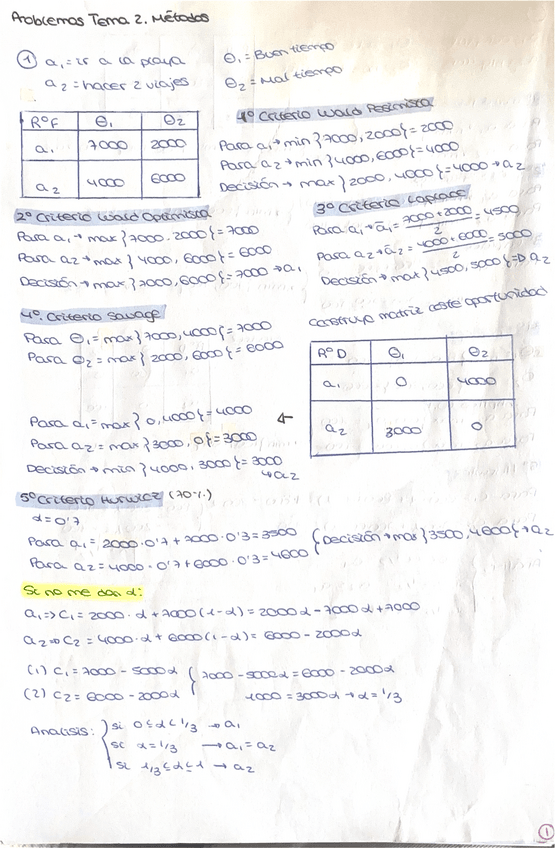 Problemas Tema 2. Métodos
① a₁ = ir a la playa
a₂ = hacer 2 viajes
θ₁ = Buen tiempo
θ₂ = Mal tiempo
RºF θ₁ θ₂
a₁ 7000 2000
a₂ 4000 6000
1º Criterio Wald Pesimista
Para a₁ → min }7000, 2000{ = 2000
Para a₂ → min }4000, 6000{ = 4000
Decisión → max }2000, 4000{ = 4000 → a₂
2º Criterio Wald Optimista
Para a₁ → max }7000, 2000{ = 7000
Para a₂ → max }4000, 6000{ = 6000
Decisión → max }7000, 6000{ = 7000 → a₁
3º Criterio Laplace
Para a₁ → ā₁ = 7000 + 2000 / 2 = 4500
Para a₂ → ā₂ = 4000 + 6000 / 2 = 5000
Decisión → max }4500, 5000{ ⇒ a₂
4º. Criterio Savage
Para θ₁ = max }7000, 4000{ = 7000
Para θ₂ = max }2000, 6000{ = 6000
Construyo matriz coste oportunidad
RºD θ₁ θ₂
a₁ 0 4000
a₂ 3000 0
Para a₁ = max }0, 4000{ = 4000 ←
Para a₂ = max }3000, 0{ = 3000
Decisión → min }4000, 3000{ = 3000
↳ a₂
5º Criterio Hurwicz (70%)
α = 0'7
Para a₁ = 2000 · 0'7 + 7000 · 0'3 = 3500
Para a₂ = 4000 · 0'7 + 6000 · 0'3 = 4600
{ Decisión → max }3500, 4600{ → a₂
Si no me dan α:
a₁ ⇒ C₁ = 2000 · α + 7000 (1 - α) = 2000α - 7000α + 7000
a₂ ⇒ C₂ = 4000 · α + 6000 (1 - α) = 6000 - 2000α
(1) C₁ = 7000 - 5000α { 7000 - 5000α = 6000 - 2000α
(2) C₂ = 6000 - 2000α 1000 = 3000α → α = 1/3
Análisis: } si 0 ≤ α < 1/3 → a₁
si α = 1/3 → a₁ = a₂
si 1/3 ≤ α ≤ 1 → a₂
1